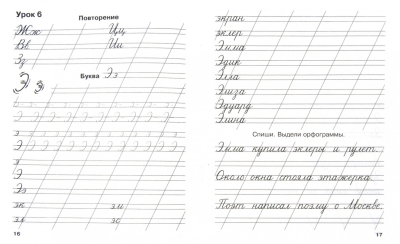 Урок 6
Повторение
Жж Цц
Вв Ии
Зз
Буква Ээ
Э
Э
Э
Э
Ээ
эк эм
эл эо
16
экран
эклер
Эмма
Эдик
Элла
Эльза
Эдуард
Элина
Спиши. Выдели орфограммы.
Эмма купила эклеры и рулет.
Около окна стояла этажерка.
Поэт написал поэму о Москве.
17